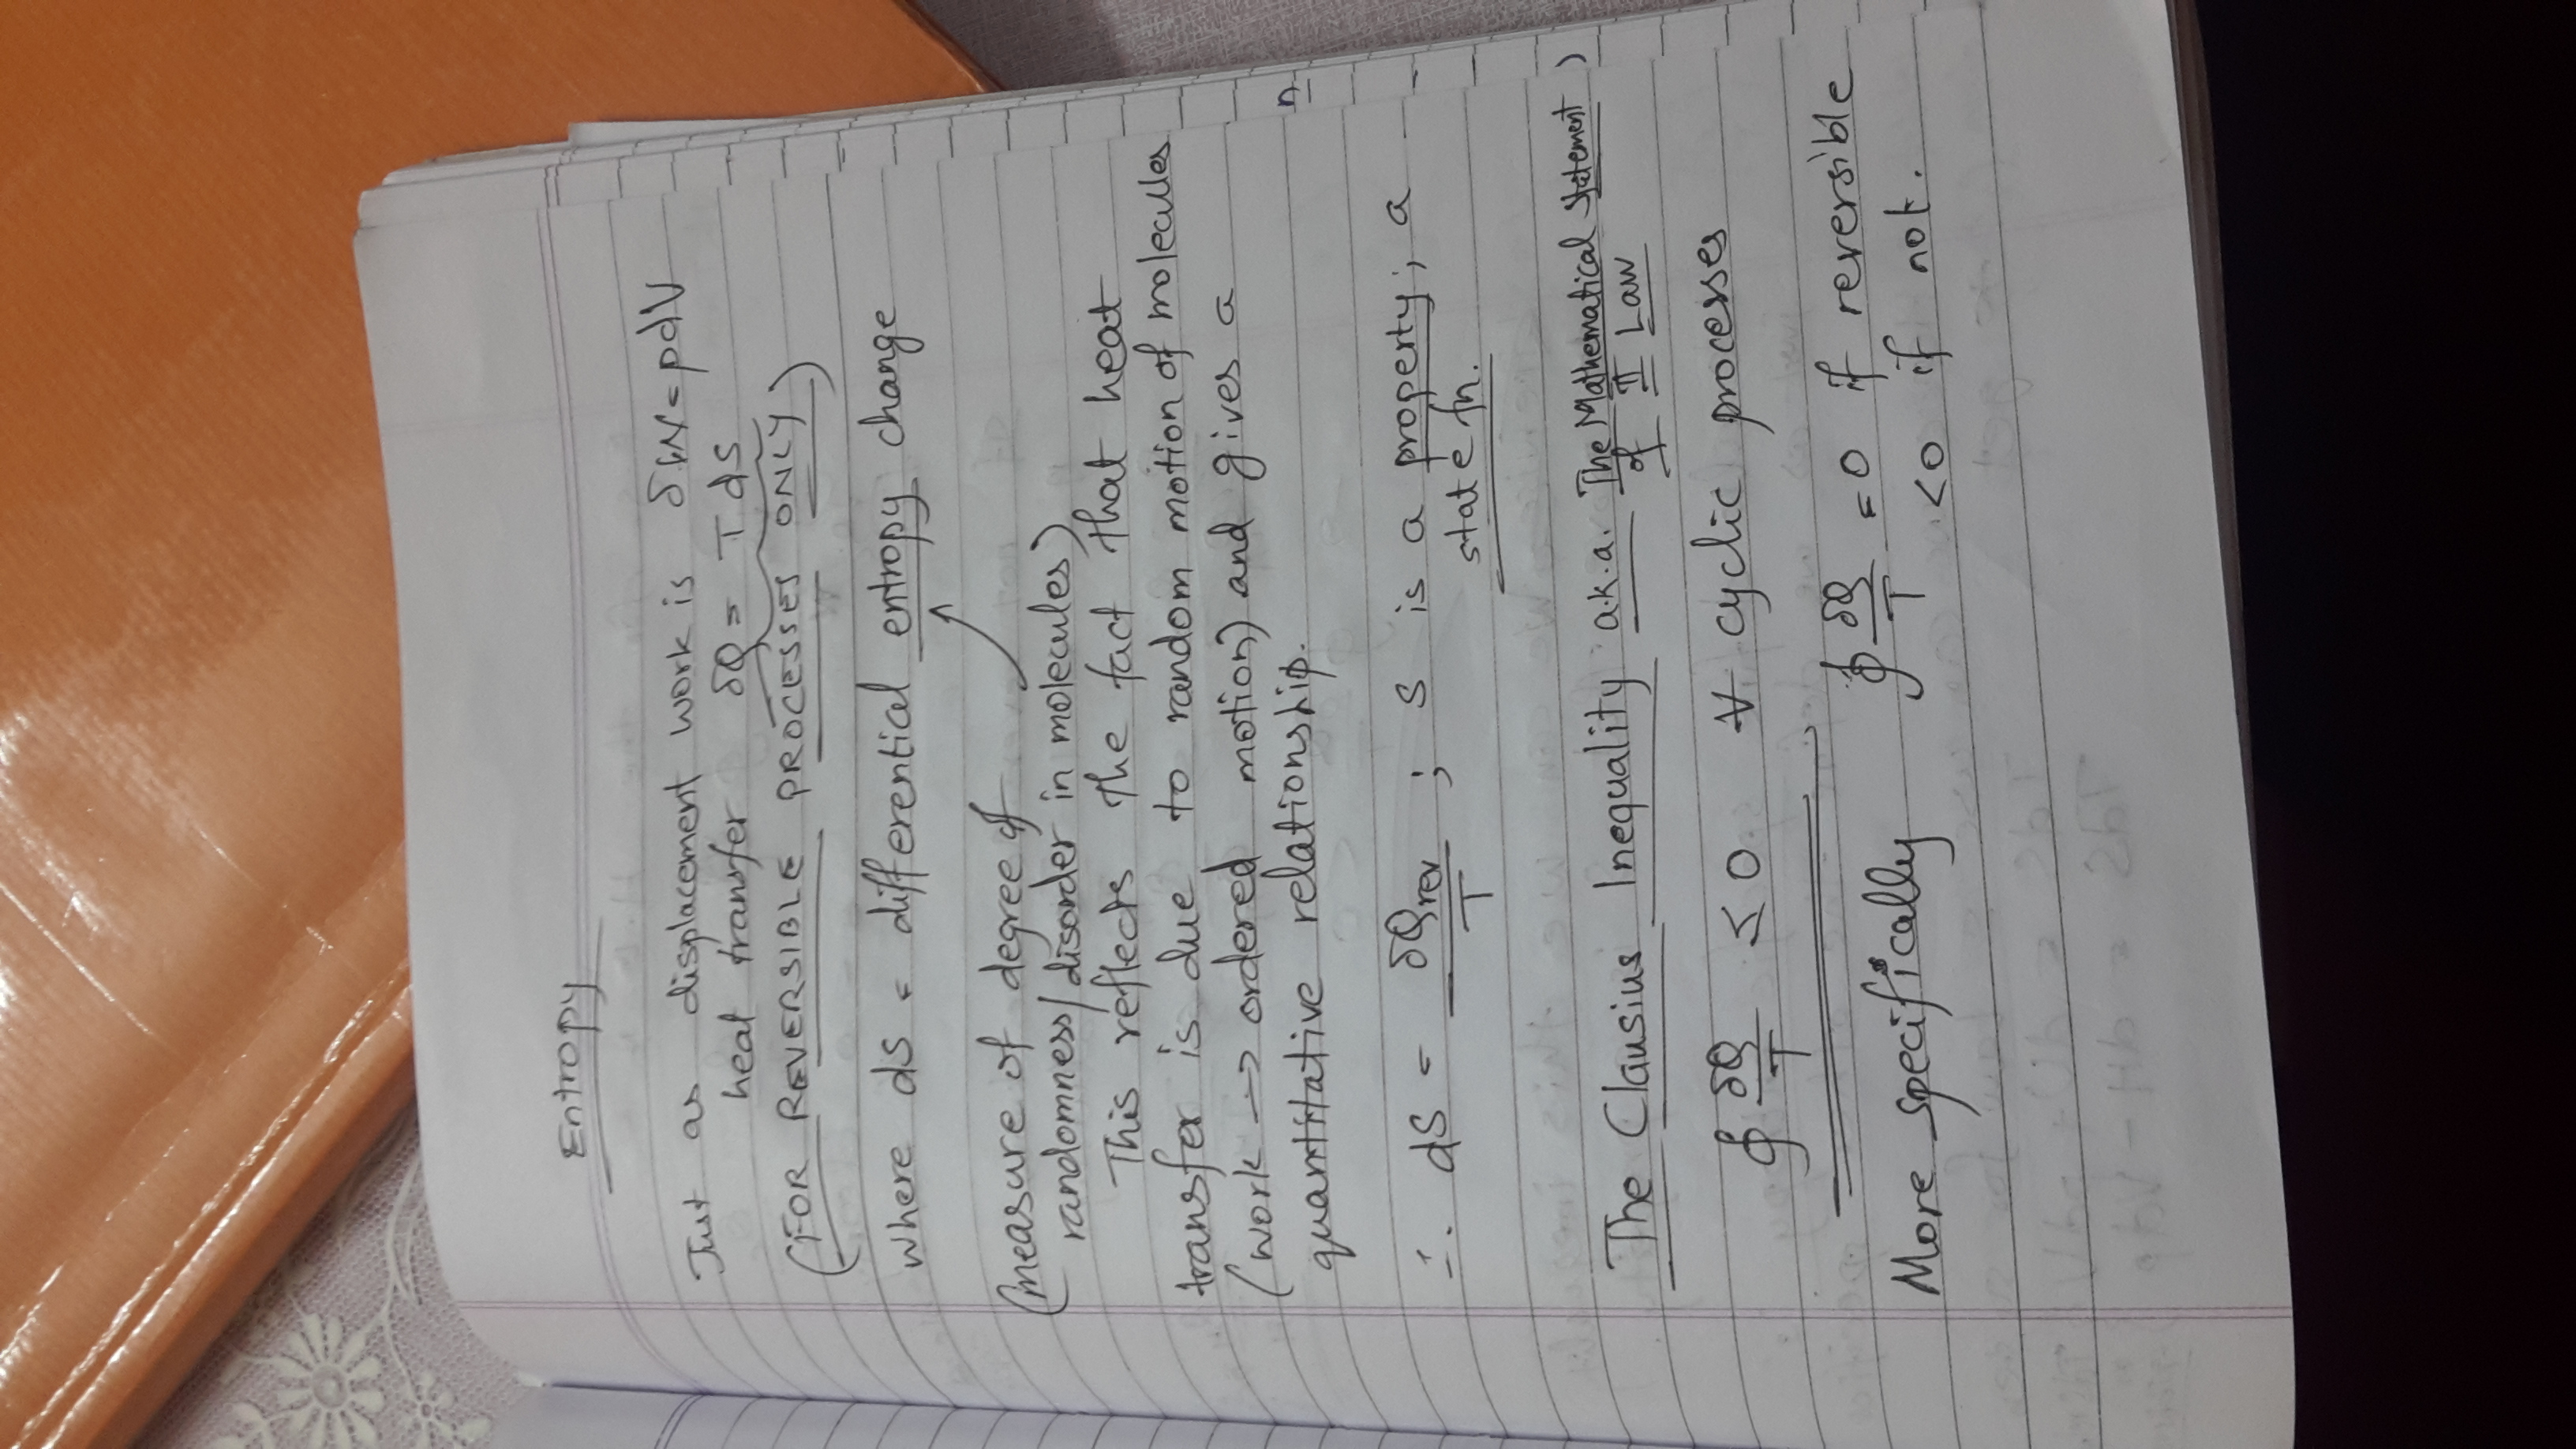 Entropy
Just as displacement work is δW = pdV
heat transfer δQ = TdS
(FOR REVERSIBLE PROCESSES ONLY)
where dS = differential entropy change
(measure of degree of
randomness/disorder in molecules)
This reflects the fact that heat
transfer is due to random motion of molecules
(work → ordered motion) and gives a
quantitative relationship.
n
∴ dS = δQrev / T ; S is a property; a
state fn.
The Clausius Inequality a.k.a. The Mathematical Statement
of II Law
∮ δQ/T ≤ 0 ∀ cyclic processes
More specifically ∮ δQ/T = 0 if reversible
<0 if not.
TdS = dU + pdV
TdS = dH - Vdp